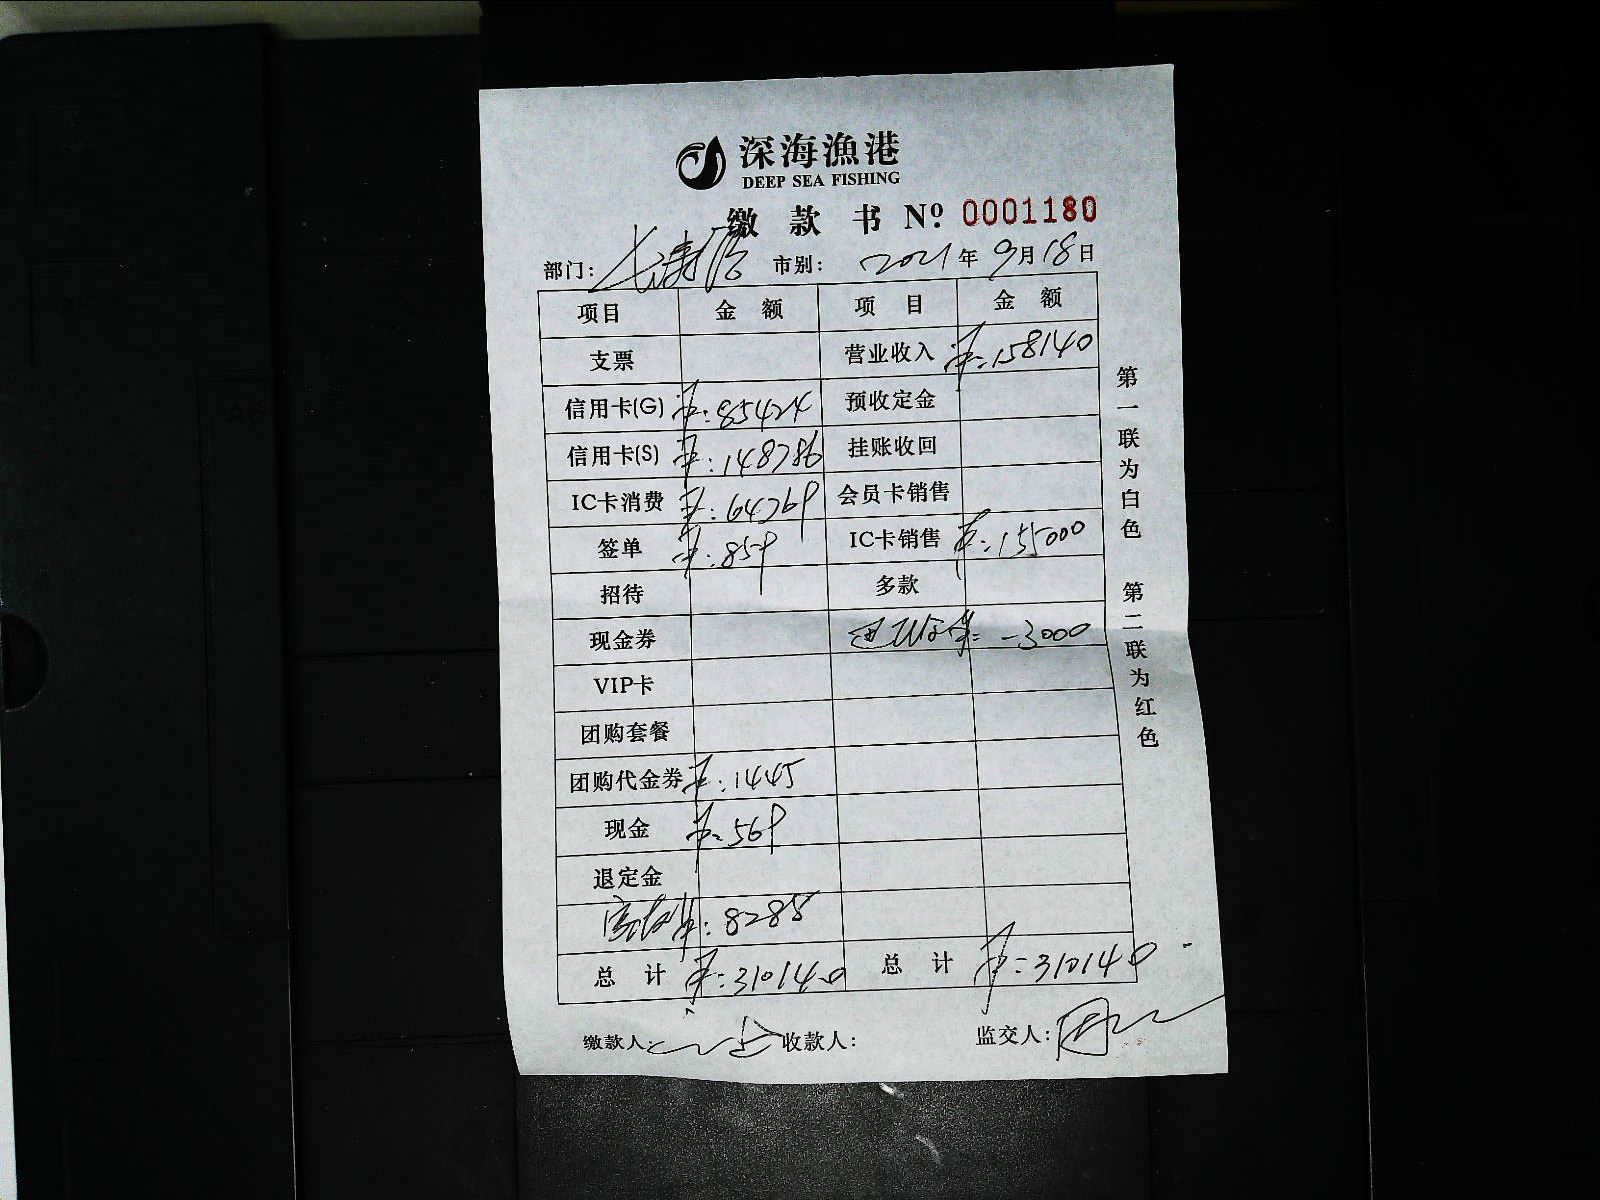 深海渔港
DEEP SEA FISHING
缴款书 Nº. 0001180
部门: 市别: 2021年9月18日
项目 金额 项目 金额
支票 营业收入 ¥:158140
信用卡(G) ¥:85424 预收定金
信用卡(S) ¥:148786 挂账收回
IC卡消费 ¥:64769 会员卡销售
签单 ¥:859 IC卡销售 ¥:155000
招待 多款
现金券 -3000
VIP卡
团购套餐
团购代金券 ¥:1445
现金 ¥:569
退定金
¥:8288
总计 ¥:310140 总计 ¥:310140
缴款人: 收款人: 监交人:
第一联为白色 第二联为红色